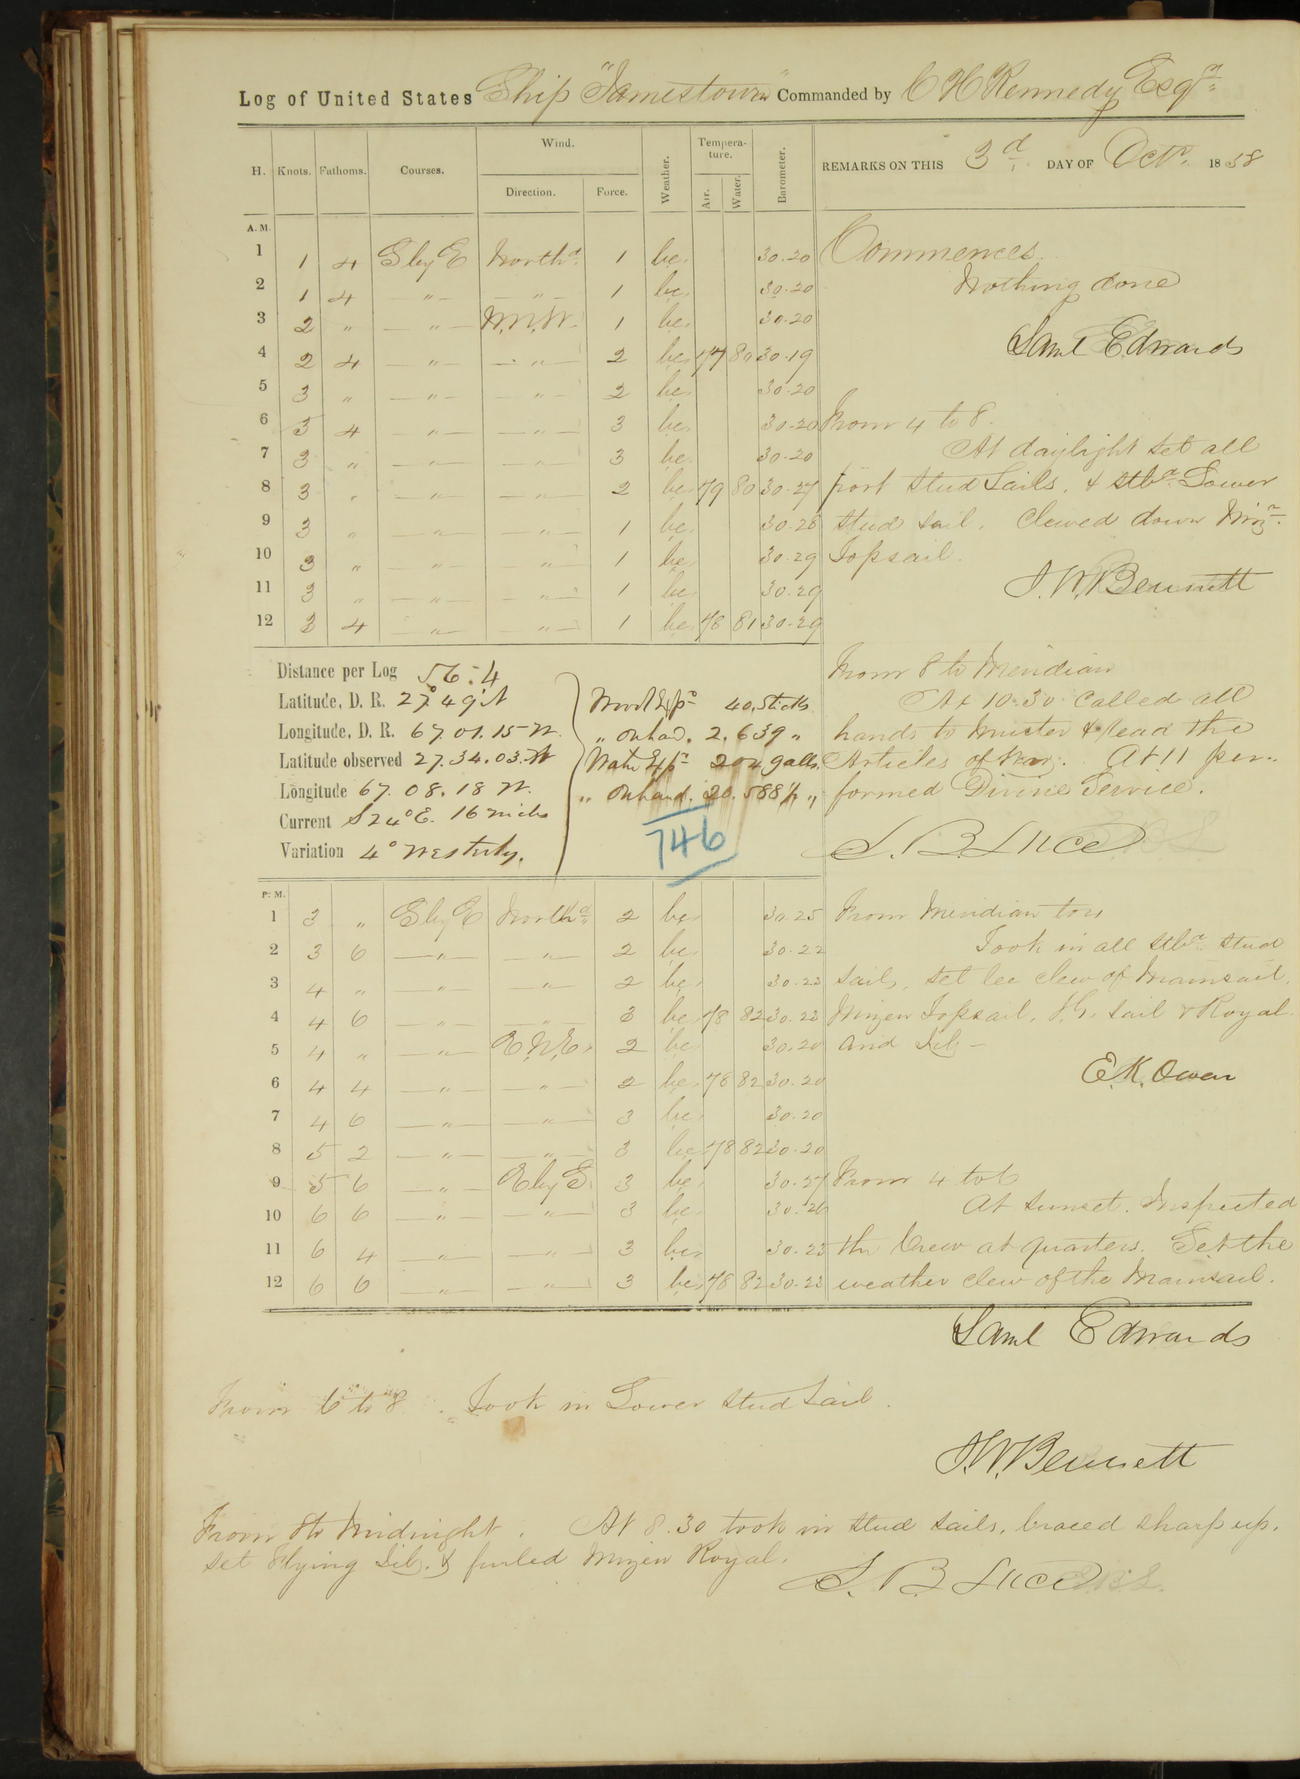 Log of United States Ship "Jamestown" Commanded by C H Kennedy Esqr
H. Knots. Fathoms. Courses. Wind. Direction. Force. Weather. Tempera-ture. Air. Water. Barometer. REMARKS ON THIS 3d DAY OF Octr. 1858
A. M.
1 1 4 S by E Northd 1 bc 30.20
2 1 4 " " 1 bc 30.20
3 2 " " N.N.W. 1 bc 30.20
4 2 4 " " 2 bc 77 80 30.19
5 3 " " " 2 bc 30.20
6 3 4 " " 3 bc 30.20
7 3 " " " 3 bc 30.20
8 3 " " " 2 bc 79 80 30.27
9 3 " " " 1 bc 30.28
10 3 " " " 1 bc 30.29
11 3 " " " 1 bc 30.29
12 3 4 " " 1 bc 78 81 30.29
Commences.
Nothing done
Saml Edwards
From 4 to 8.
At daylight set all
port stud sails, & stbd Lower
stud sail. Clewed down Mizn
Topsail.
J. W. Bennett
From 8 to Meridian
At 10.30 called all
hands to muster & read the
Articles of War. At 11 per-
formed Divine Service.
S. B. Luce
Distance per Log 56.4
Latitude, D. R. 27° 49' N
Longitude, D. R. 67.01.15 W.
Latitude observed 27.34.03. N
Longitude 67.08.18 W.
Current S 24° E. 16 miles
Variation 4° Westerly.
Wood Expd 40 Sticks
" on hand. 2,639 "
Water Expd 204 galls.
" on hand. 20.588 1/2 "
746
P. M.
1 3 " S by E Northd 2 bc 30.25
2 3 6 " " 2 bc 30.22
3 4 " " " 2 bc 30.22
4 4 6 " " 3 bc 78 82 30.23
5 4 " " E.N.E. 2 bc 30.20
6 4 4 " " 2 bc 78 82 30.20
7 4 6 " " 3 bc 30.20
8 5 2 " " 3 bc 78 82 30.20
9 5 6 " E by S. 3 bc 30.27
10 6 6 " " 3 bc 30.26
11 6 4 " " 3 bc 30.23
12 6 6 " " 3 bc 78 82 30.23
From Meridian to 4
Took in all stbd stud
sails, set lee clew of Mainsail,
Mizen Topsail, T.G. sail & Royal
and Jib -
E. K. Owen
From 4 to 6
At sunset. Inspected
the Crew at quarters. Set the
weather clew of the Mainsail.
Saml Edwards
From 6 to 8. Took in Lower stud sail.
J. W. Bennett
From 8 to Midnight. At 8.30 took in stud sails, braced sharp up,
set Flying Jib, & furled Mizen Royal.
S. B. Luce